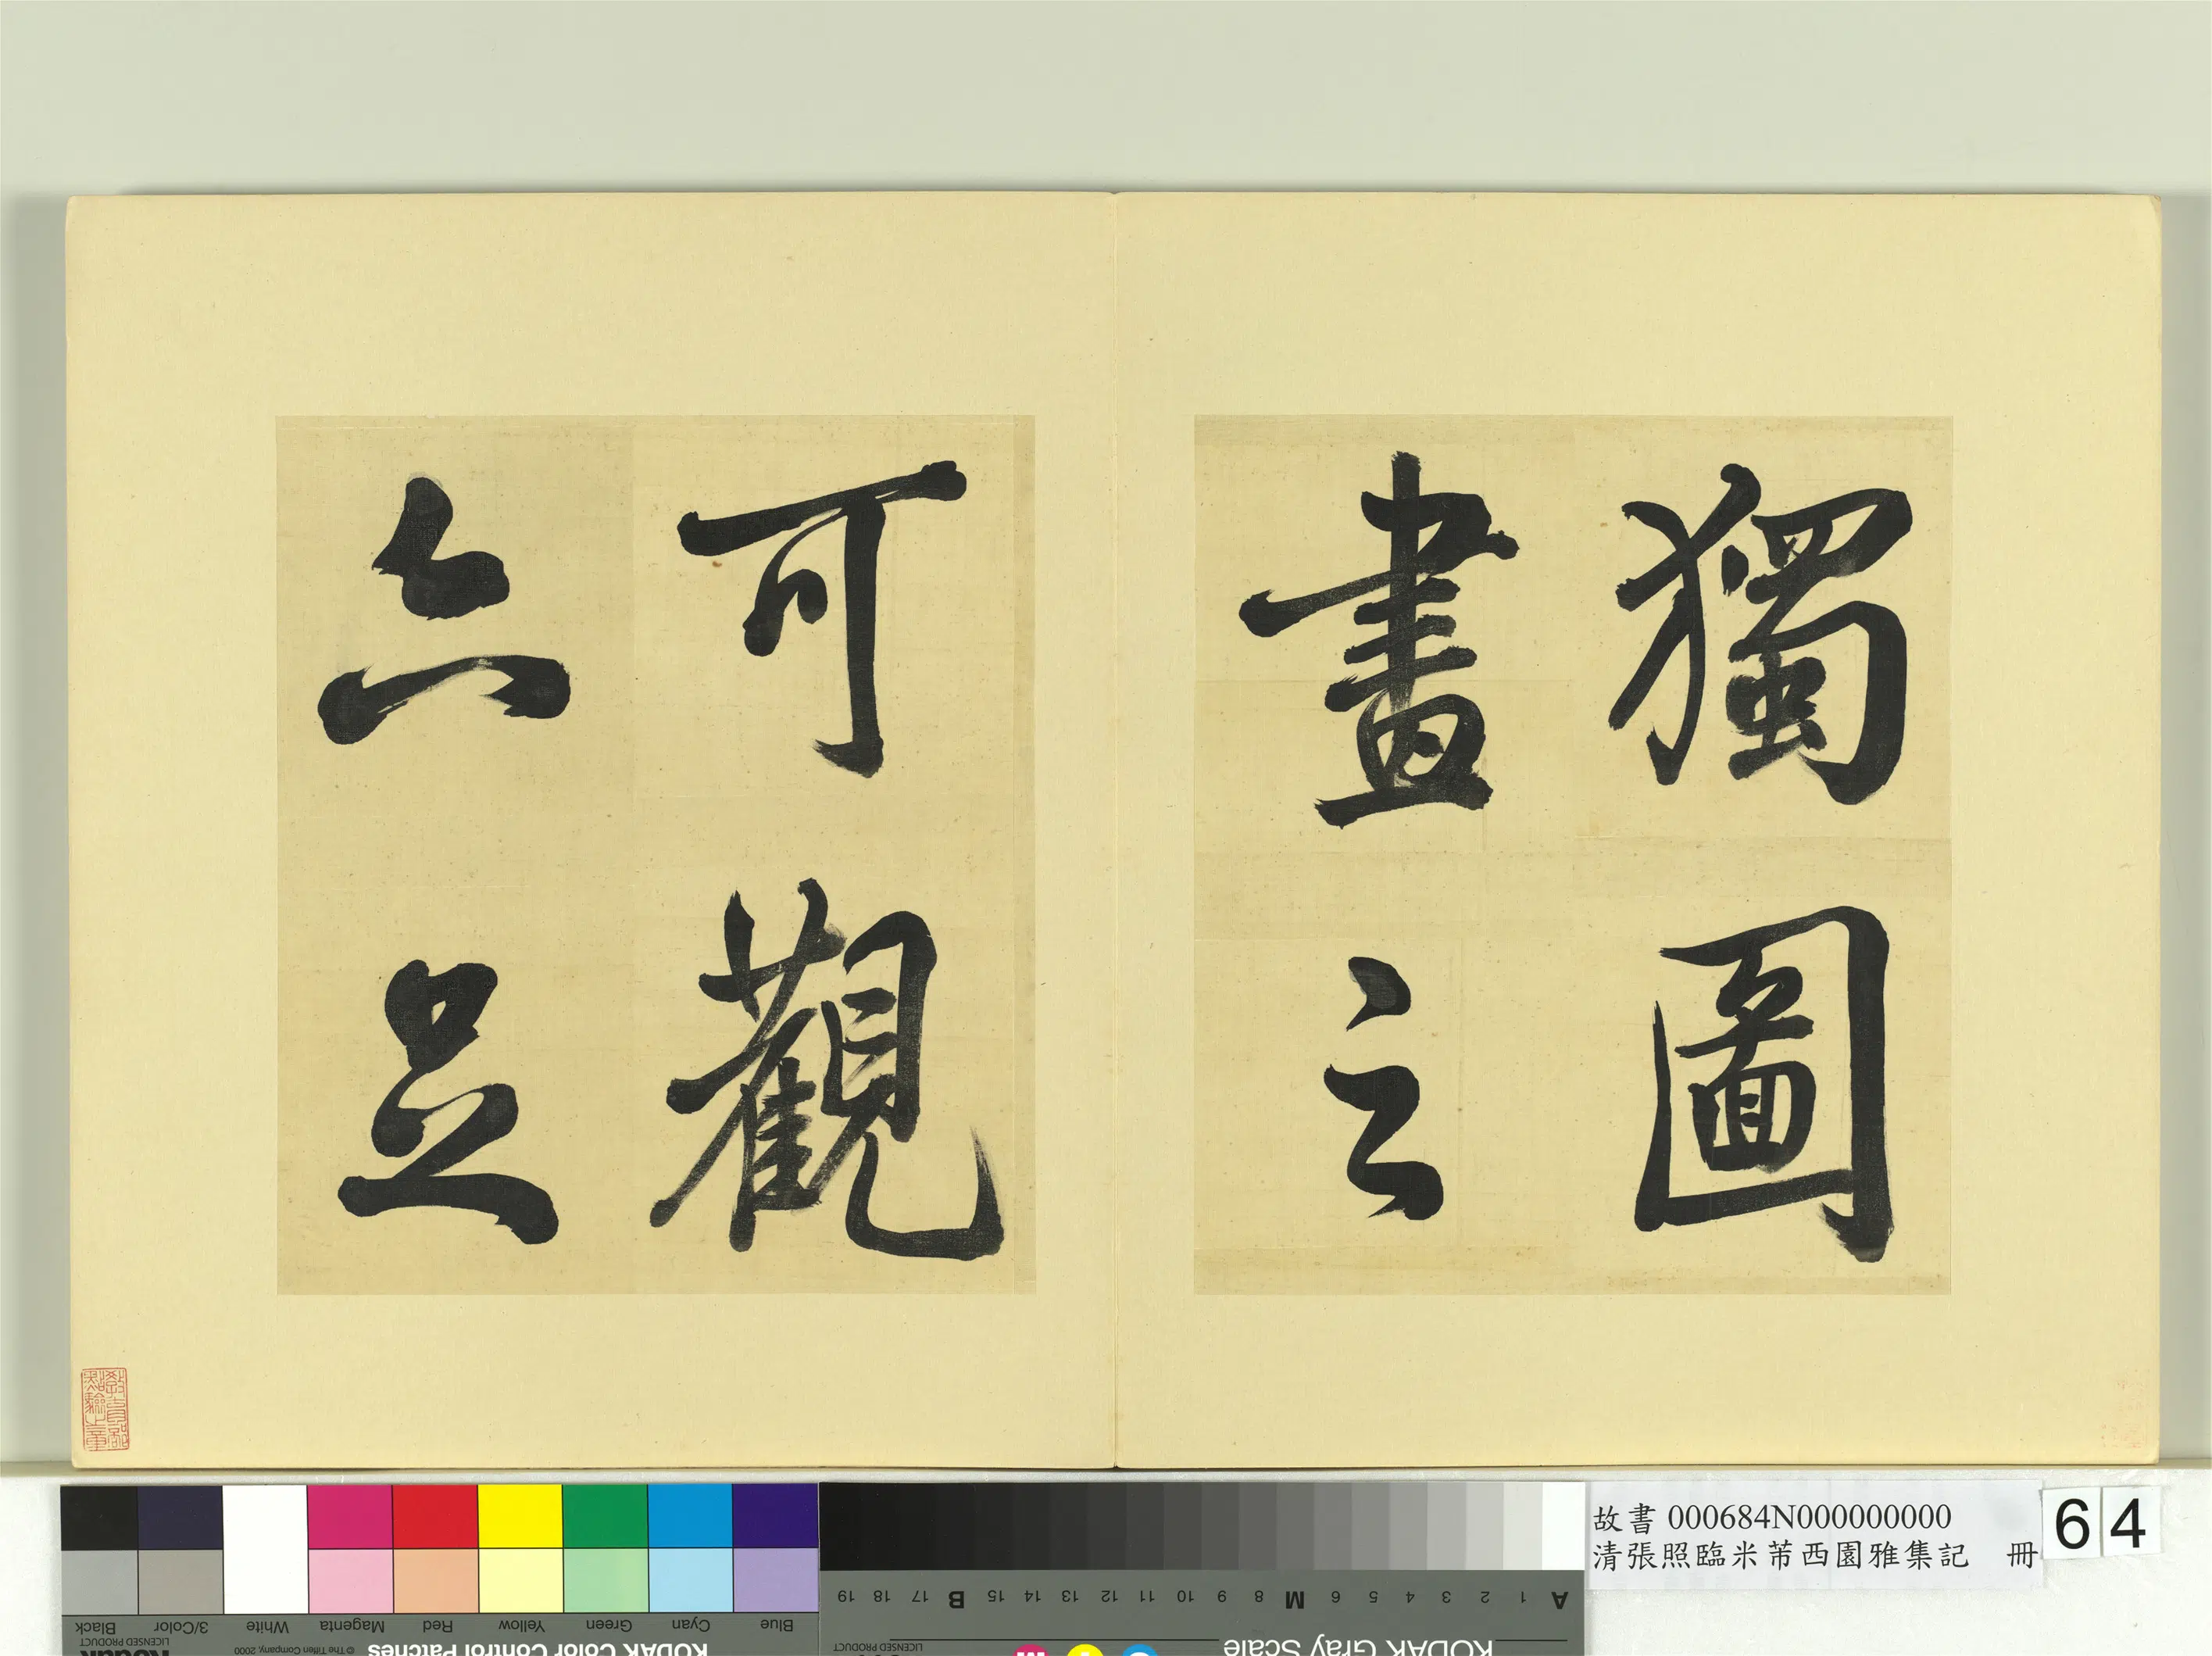 獨圖
畫之
可觀
亦足
故書 000684N000000000
清張照臨米芾西園雅集記 冊
64
教育部
點驗之章
Black
3/Color
White
Magenta
Red
Yellow
Green
Cyan
Blue
LICENSED PRODUCT
© The Tiffen Company, 2000
KODAK Color Control Patches
Kodak
A 1 2 3 4 5 6 M 8 9 10 11 12 13 14 15 B 17 18 19
KODAK Gray Scale
LICENSED PRODUCT